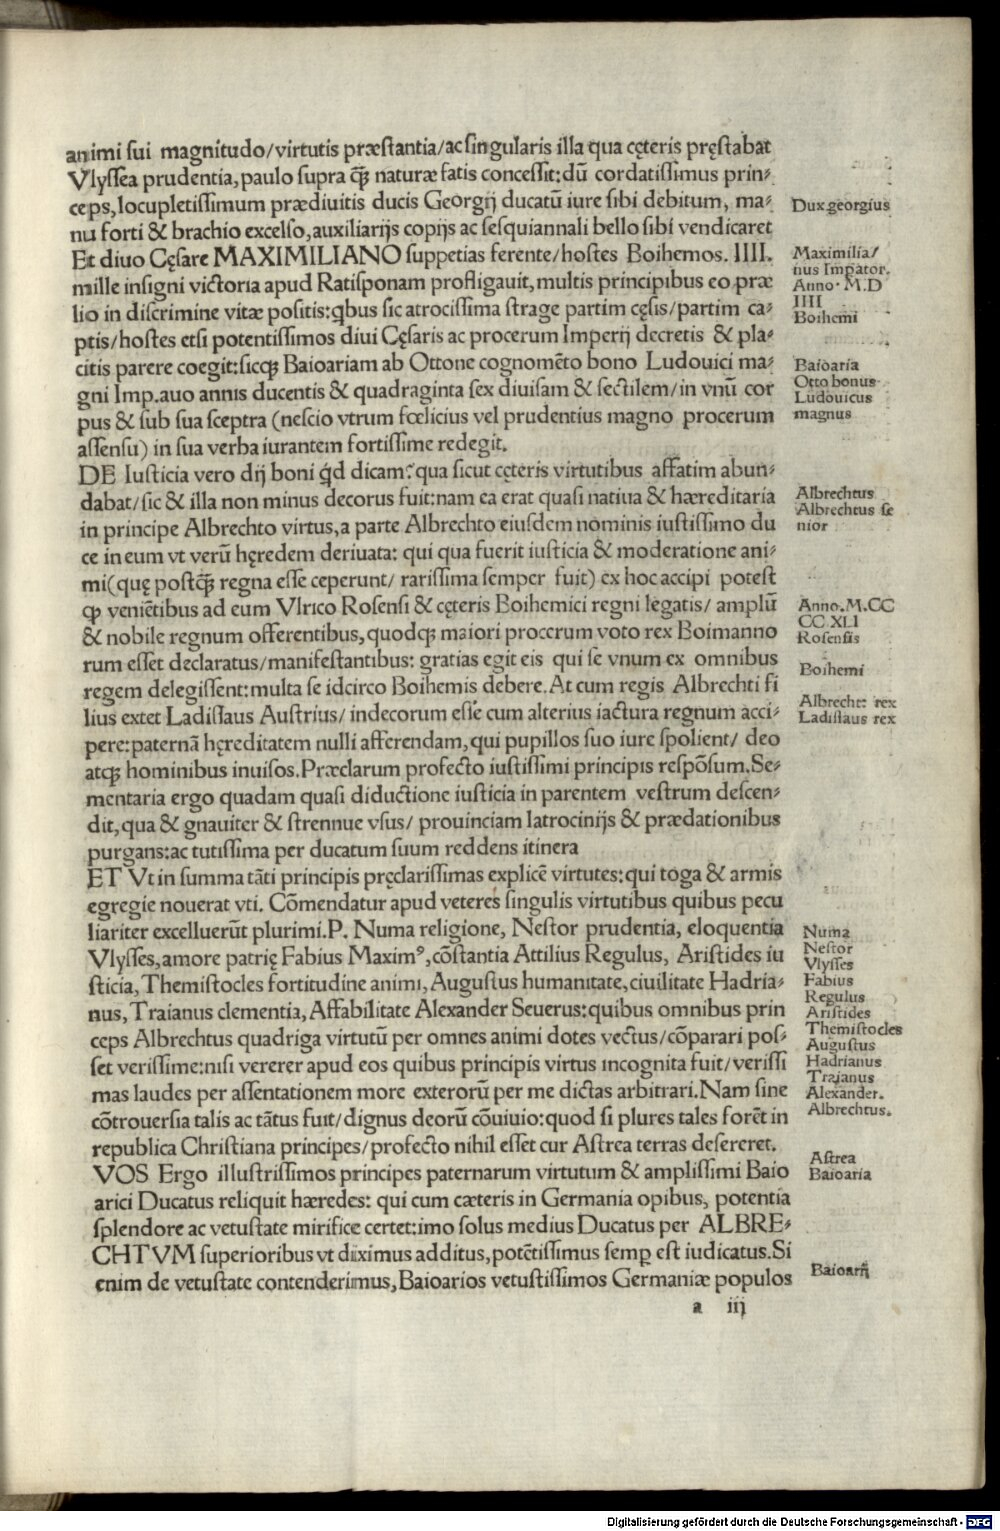 animi sui magnitudo/virtutis præstantia/ac singularis illa qua cęteris pręstabat
Vlyssea prudentia, paulo supra q̃ꝫ naturæ fatis concessit: dũ cordatissimus prin⸗
ceps, locupletissimum prædiuitis ducis Georgij ducatũ iure sibi debitum, ma⸗
nu forti & brachio excelso, auxiliarijs copijs ac sesquiannali bello sibi vendicaret
Et diuo Cęsare MAXIMILIANO suppetias ferente/hostes Boihemos. IIII.
mille insigni victoria apud Ratisponam profligauit, multis principibus eo præ
lio in discrimine vitæ positis: qbus sic atrocissima strage partim cęsis/partim ca⸗
ptis/hostes etsi potentissimos diui Cęsaris ac procerum Imperij decretis & pla⸗
citis parere coegit: sicqꝫ Baioariam ab Ottone cognomẽto bono Ludouici ma⸗
gni Imp. auo annis ducentis & quadraginta sex diuisam & sectilem/in vnũ cor
pus & sub sua sceptra (nescio vtrum fœlicius vel prudentius magno procerum
assensu) in sua verba iurantem fortissime redegit.
DE Iusticia vero dij boni qd dicam? qua sicut cęteris virtutibus affatim abun⸗
dabat/sic & illa non minus decorus fuit: nam ea erat quasi natiua & hæreditaria
in principe Albrechto virtus, a parte Albrechto eiusdem nominis iustissimo du
ce in eum vt verũ hęredem deriuata: qui qua fuerit iusticia & moderatione ani⸗
mi(quę postq̃ꝫ regna esse ceperunt/ rarissima semper fuit) ex hoc accipi potest
ꝙ veniẽtibus ad eum Vlrico Rosensi & cęteris Boihemici regni legatis/ amplũ
& nobile regnum offerentibus, quodqꝫ maiori procerum voto rex Boimanno
rum esset declaratus/manifestantibus: gratias egit eis qui se vnum ex omnibus
regem delegissent: multa se idcirco Boihemis debere. At cum regis Albrechti fi
lius extet Ladislaus Austrius/ indecorum esse cum alterius iactura regnum acci⸗
pere: paternã hęreditatem nulli afferendam, qui pupillos suo iure spolient/ deo
atqꝫ hominibus inuisos. Præclarum profecto iustissimi principis respõsum. Se⸗
mentaria ergo quadam quasi diductione iusticia in parentem vestrum descen⸗
dit, qua & gnauiter & strennue vsus/ prouinciam latrocinijs & prædationibus
purgans: ac tutissima per ducatum suum reddens itinera
ET Vt in summa tãti principis pręclarissimas explicẽ virtutes: qui toga & armis
egregie nouerat vti. Cõmendatur apud veteres singulis virtutibus quibus pecu
liariter excelluerũt plurimi. P. Numa religione, Nestor prudentia, eloquentia
Vlysses, amore patrię Fabius Maximꝰ, cõstantia Attilius Regulus, Aristides iu
sticia, Themistocles fortitudine animi, Augustus humanitate, ciuilitate Hadria⸗
nus, Traianus clementia, Affabilitate Alexander Seuerus: quibus omnibus prin
ceps Albrechtus quadriga virtutũ per omnes animi dotes vectus/cõparari pos⸗
set verissime: nisi vererer apud eos quibus principis virtus incognita fuit/verissi
mas laudes per assentationem more exterorũ per me dictas arbitrari. Nam sine
cõtrouersia talis ac tãtus fuit/dignus deorũ cõuiuio: quod si plures tales forẽt in
republica Christiana principes/profecto nihil esset cur Astrea terras desereret.
VOS Ergo illustrissimos principes paternarum virtutum & amplissimi Baio
arici Ducatus reliquit hæredes: qui cum cæteris in Germania opibus, potentia
splendore ac vetustate mirifice certet: imo solus medius Ducatus per ALBRE⸗
CHTVM superioribus vt diximus additus, potẽtissimus semꝑ est iudicatus. Si
enim de vetustate contenderimus, Baioarios vetustissimos Germaniæ populos
a iij
Dux georgius
Maximilia/
nus Impator.
Anno. M.D
IIII
Boihemi
Baioaria
Otto bonus
Ludouicus
magnus
Albrechtus
Albrechtus se
nior
Anno. M.CC
CC XLI
Rosensis
Boihemi
Albrecht: rex
Ladislaus rex
Numa
Nestor
Vlysses
Fabius
Regulus
Aristides
Themistocles
Augustus
Hadrianus
Traianus
Alexander.
Albrechtus.
Astrea
Baioaria
Baioarij
Digitalisierung gefördert durch die Deutsche Forschungsgemeinschaft - DFG